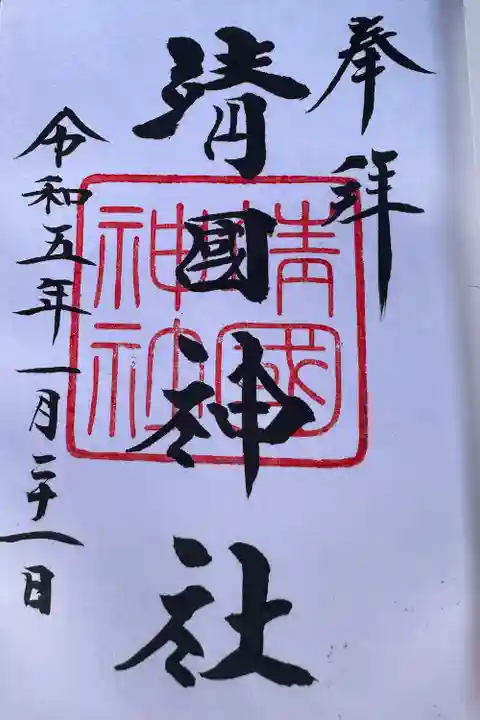 奉拝
靖國神社
令和五年一月二十一日
靖國
神社